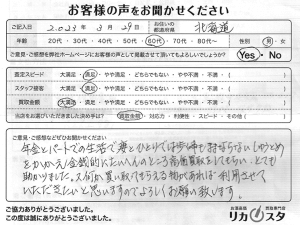 お客様の声をお聞かせください
ご記入日 2023年3月29日 お住いの都道府県 北海道
年齢 20代・30代・40代・50代・60代・70代・80代〜 性別 男・女
ご意見・ご感想を弊社ホームページにお客様の声として掲載させて頂いてもよろしいでしょうか? Yes・No
査定スピード 大満足・満足・やや満足・どちらでもない・やや不満・不満
スタッフ接客 大満足・満足・やや満足・どちらでもない・やや不満・不満
買取金額 大満足・満足・やや満足・どちらでもない・やや不満・不満
当店をお選びいただきました決め手は? 買取金額・対応力・利便性・スピード・その他( )
ご意見・ご感想などぜひお聞かせください
年金とパートでの生活で妻と
をかかえ金銭的にたいへんのところ高価買取をしてもらい、とても
助かりました。又何か買い取ってもらえる物があれば利用させて
いただきたいと思いますのでよろしくお願い致します。
ご協力ありがとうございました。
この度は誠にありがとうございました。
お酒高価買取専門店
リカスタ